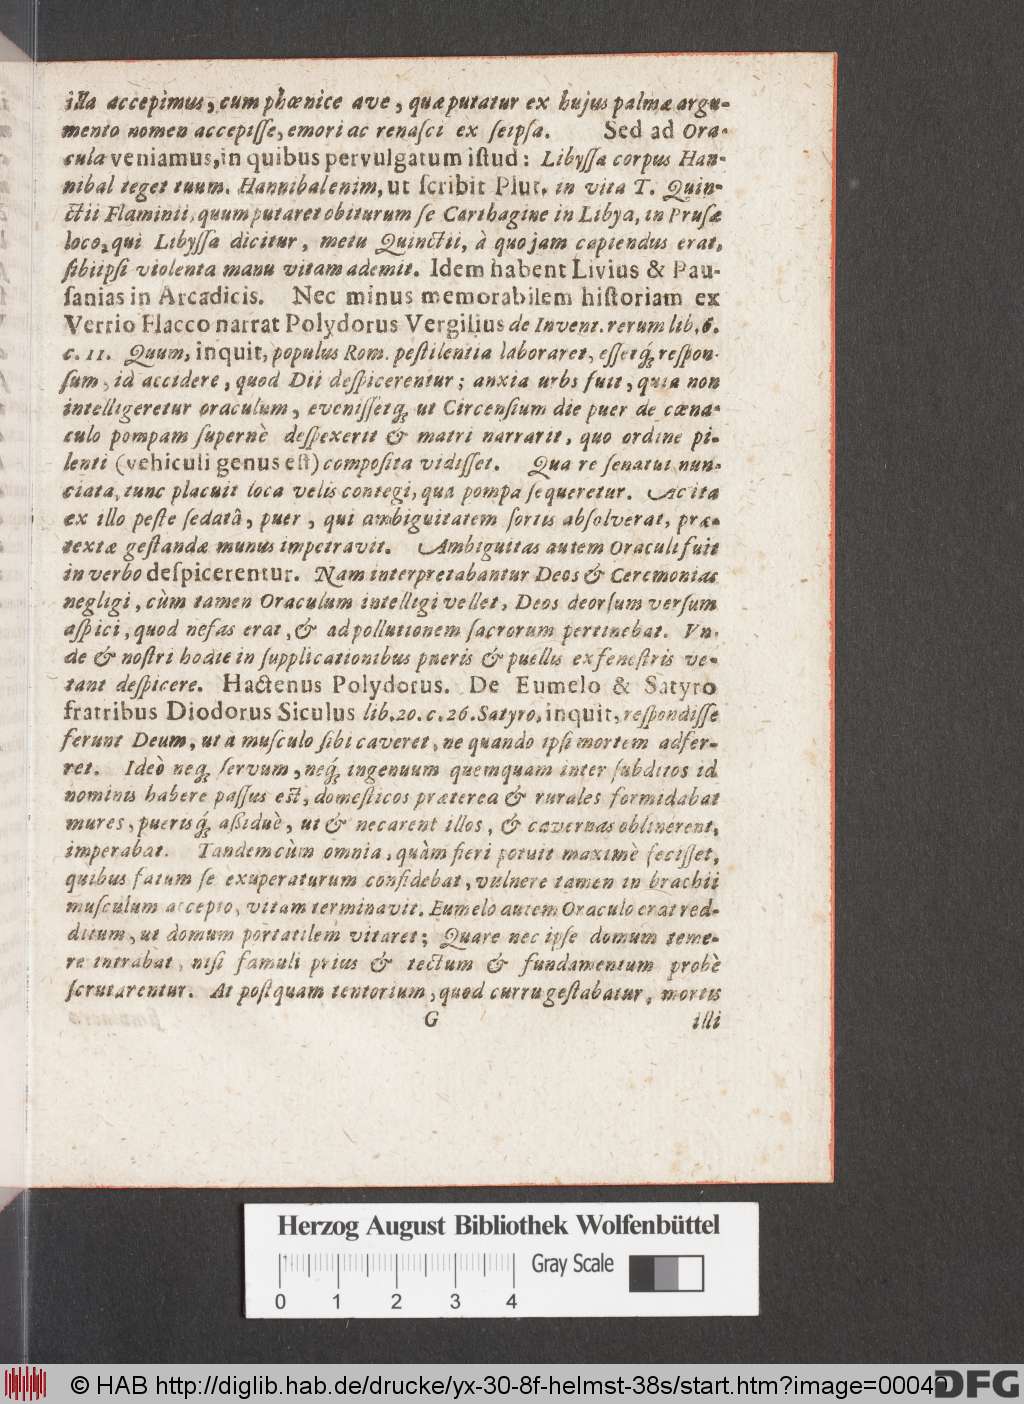 illa accepimus, cum phœnice ave, quæ putatur ex hujus palmæ argu-
mento nomen accepiſſe, emori ac renaſci ex ſeipſa. Sed ad Ora-
cula veniamus, in quibus pervulgatum iſtud: Libyſſa corpus Han-
nibal teget tuum. Hannibal enim, ut ſcribit Plut. in vita T. Quin-
ctii Flaminii, quum putaret obiturum ſe Carthagine in Libya, in Pruſæ
loco, qui Libyſſa dicitur, metu Quinctii, à quo jam capiendus erat,
ſibiipſi violenta manu vitam ademit. Idem habent Livius & Pau-
ſanias in Arcadicis. Nec minus memorabilem hiſtoriam ex
Verrio Flacco narrat Polydorus Vergilius de Invent. rerum lib. 6.
c. 11. Quum, inquit, populus Rom. peſtilentia laboraret, eſſetq́; reſpon-
ſum, id accidere, quod Dii deſpicerentur; anxia urbs fuit, quia non
intelligeretur oraculum, eveniſſetq; ut Circenſium die puer de cœna-
culo pompam ſupernè deſpexerit & matri narrarit, quo ordine pi-
lenti (vehiculi genus eſt) compoſita vidiſſet. Qua re ſenatui nun-
ciata, tunc placuit loca velis contegi, qua pompa ſequeretur. Ac ita
ex illo peſte ſedatâ, puer, qui ambiguitatem ſortis abſolverat, præ-
textæ geſtandæ munus impetravit. Ambiguitas autem Oraculi fuit
in verbo deſpicerentur. Nam interpretabantur Deos & Ceremonias
negligi, cùm tamen Oraculum intelligi vellet, Deos deorſum verſum
aſpici, quod nefas erat, & ad pollutionem ſacrorum pertinebat. Vn-
de & noſtri hodie in ſupplicationibus pueris & puellis ex feneſtris ve-
tant deſpicere. Hactenus Polydorus. De Eumelo & Satyro
fratribus Diodorus Siculus lib. 20. c. 26. Satyro, inquit, reſpondiſſe
ferunt Deum, ut a muſculo ſibi caveret, ne quando ipſi mortem adfer-
ret. Ideò neq; ſervum, neq́; ingenuum quemquam inter ſubditos id
nominis habere paſſus eſt, domeſticos præterea & rurales formidabat
mures, puerisq́; aßiduè, ut & necarent illos, & cavernas oblinerent,
imperabat. Tandem cùm omnia, quàm fieri potuit maximè feciſſet,
quibus fatum ſe exuperaturum confidebat, vulnere tamen in brachii
muſculum accepto, vitam terminavit. Eumelo autem Oraculo erat red-
ditum, ut domum portatilem vitaret; Quare nec ipſe domum teme-
re intrabat, niſi famuli prius & tectum & fundamentum probè
ſcrutarentur. At poſtquam tentorium, quod curru geſtabatur, mortis
G illi
Herzog August Bibliothek Wolfenbüttel
Gray Scale
0 1 2 3 4
© HAB http://diglib.hab.de/drucke/yx-30-8f-helmst-38s/start.htm?image=00049
DFG